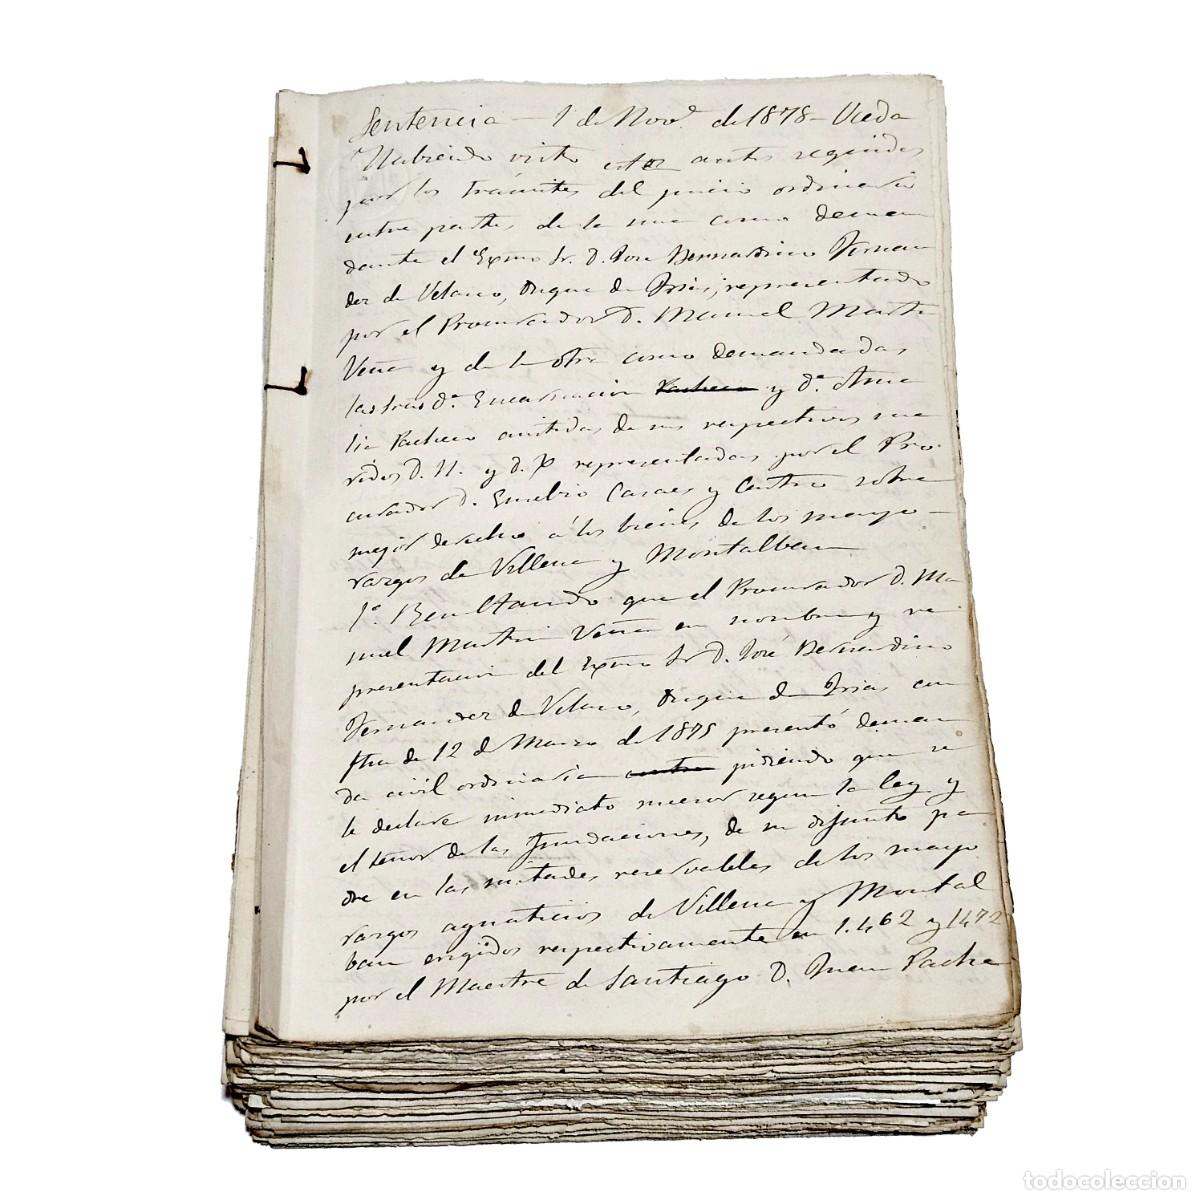 Sentencia – 1 de Nov.e de 1878 – Uceda
Habiendo visto estos autos seguidos
por los trámites del juicio ordinario
entre partes, de la una como deman
dante el Exmo Sr. D. José Bernardino Fernan
dez de Velasco, Duque de Frias, representado
por el Procurador D. Manuel Martin
Veña y de la otra como demandadas
las tras D.ª Encarnacion Pacheco y D.ª Ama
lia Pacheco asistidas de sus respectivos ma
ridos D. N. y D. P. representadas por el Pro
curador D. Eusebio Casaes y Castro sobre
mejor derecho á los bienes de los mayo–
razgos de Villena y Montalban
1.º Resultando que el Procurador D. Ma
nuel Martin Veña en nombre y re
presentacion del Exmo Sr. D. José Bernardino
Fernandez de Velasco, Duque de Frias con
fha de 12 de Marzo de 1875 presentó deman
da civil ordinaria contra pidiendo que se
le declare inmediato sucesor segun la ley y
el tenor de las fundaciones, de su difunto pa
dre en las mitades reservables de los mayo
razgos agnaticios de Villena y Montal
ban erigidos respectivamente en 1.462 y 1472
por el Maestre de Santiago D. Juan Pache
todocoleccion